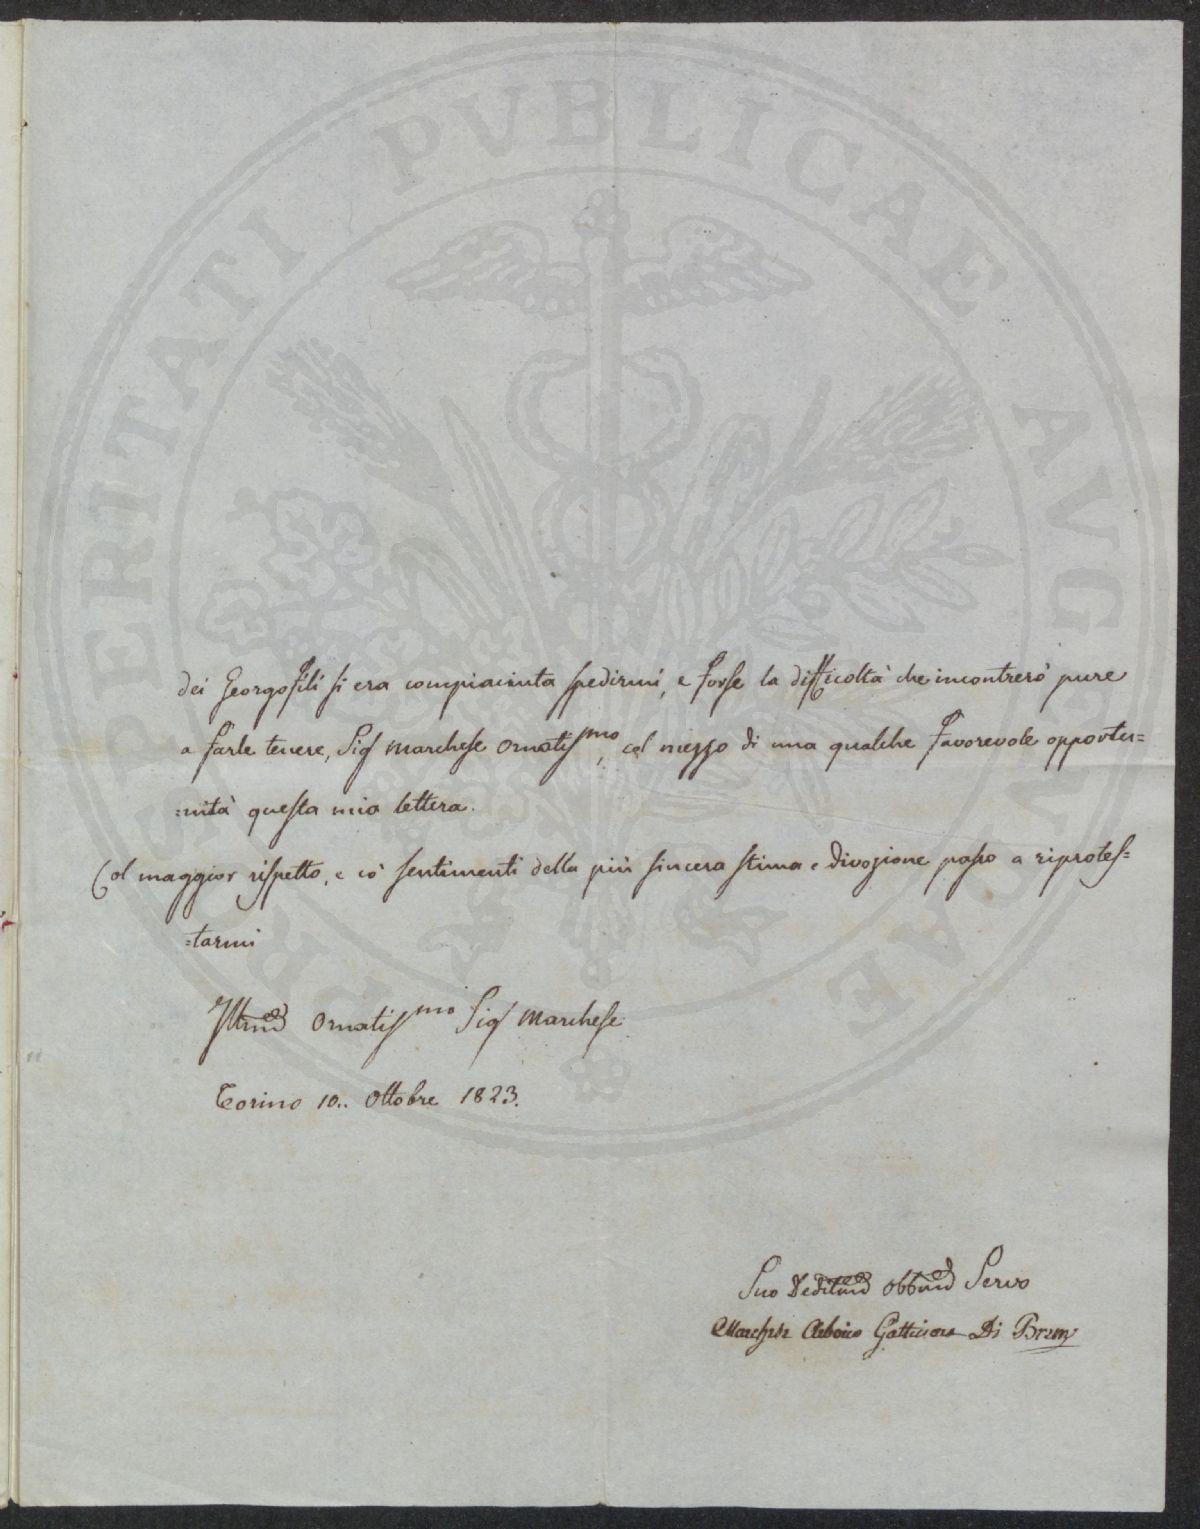 PROSPERITATI PUBLICAE AVGENDAE
dei Georgofili si era compiaciuta spedirmi, e forse la difficoltà che incontrerò pure
a farle tenere, Sig Marchese Ornatis^mo, col mezzo di una qualche favorevole opportu=
=nità questa mia lettera.
Col maggior rispetto, e co' sentimenti della più sincera stima e divozione passo a riprotes=
=tarmi
Illmo Ornatis^mo Sig Marchese
Torino 10.. Ottobre 1823.
Suo Deditmo Obbmo Servo
Marchese Arborio Gattinara Di Breme